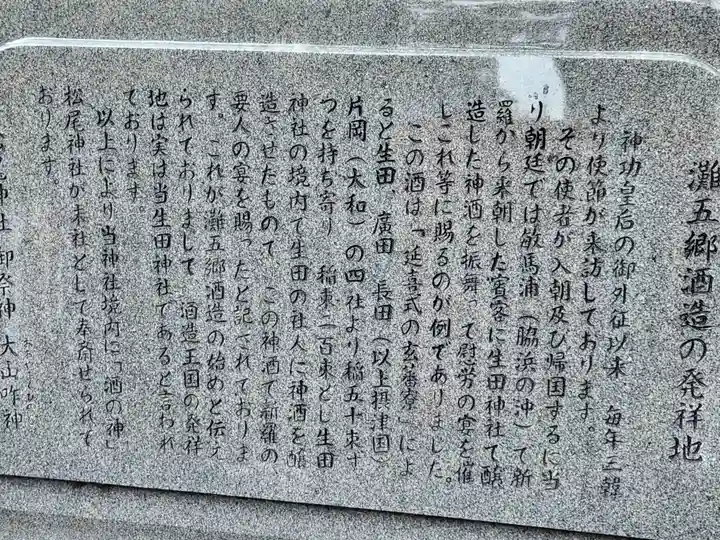 灘五郷酒造の発祥地
神功皇后の御外征以来 毎年三韓
より使節が来訪しております。
その使者が入朝及び帰国するに当
り朝廷では敏馬浦(脇浜の沖)で新
羅から来朝した賓客に生田神社で醸
造した神酒を振舞って慰労の宴を催
しこれ等に賜るのが例でありました。
この酒は「延喜式の玄蕃寮」によ
ると生田 廣田 長田(以上摂津国)
片岡(大和)の四社より稲五十束ず
つを持ち寄り 稲束(百束とし生田
神社の境内で生田の社人に神酒を醸
造させたもので この神酒で新羅の
要人の宴を賜ったと記されておりま
す。これが灘五郷酒造の始めと伝え
られておりまして 酒造王国の発祥
地は実は当生田神社であると言われ
ております。
以上により当神社境内に「酒の神」
松尾神社が末社として奉斎せられて
おります。
松尾神社 御祭神 大山咋神